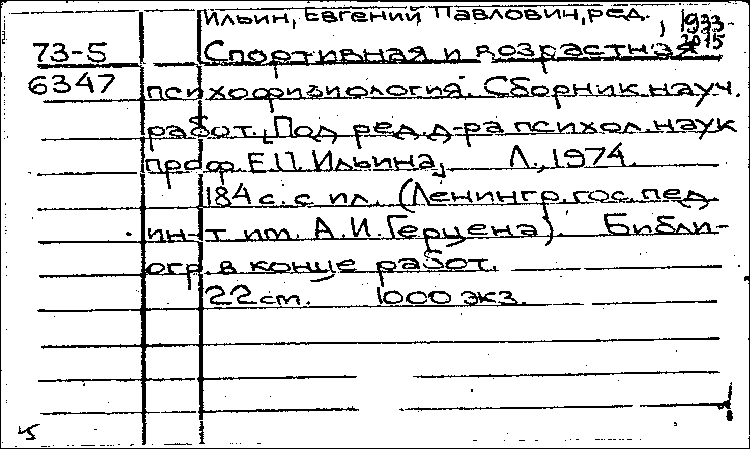 Ильин, Евгений Павлович, ред., 1933-
2015
73-5 Спортивная и возрастная
6347 психофизиология. Сборник науч.
работ. Под ред. д-ра психол. наук
проф. Е.П. Ильина, Л., 1974.
184 с. с ил. (Ленингр. гос. пед.
ин-т им. А.И. Герцена). Библи-
огр. в конце работ.
22 см. 1000 экз.